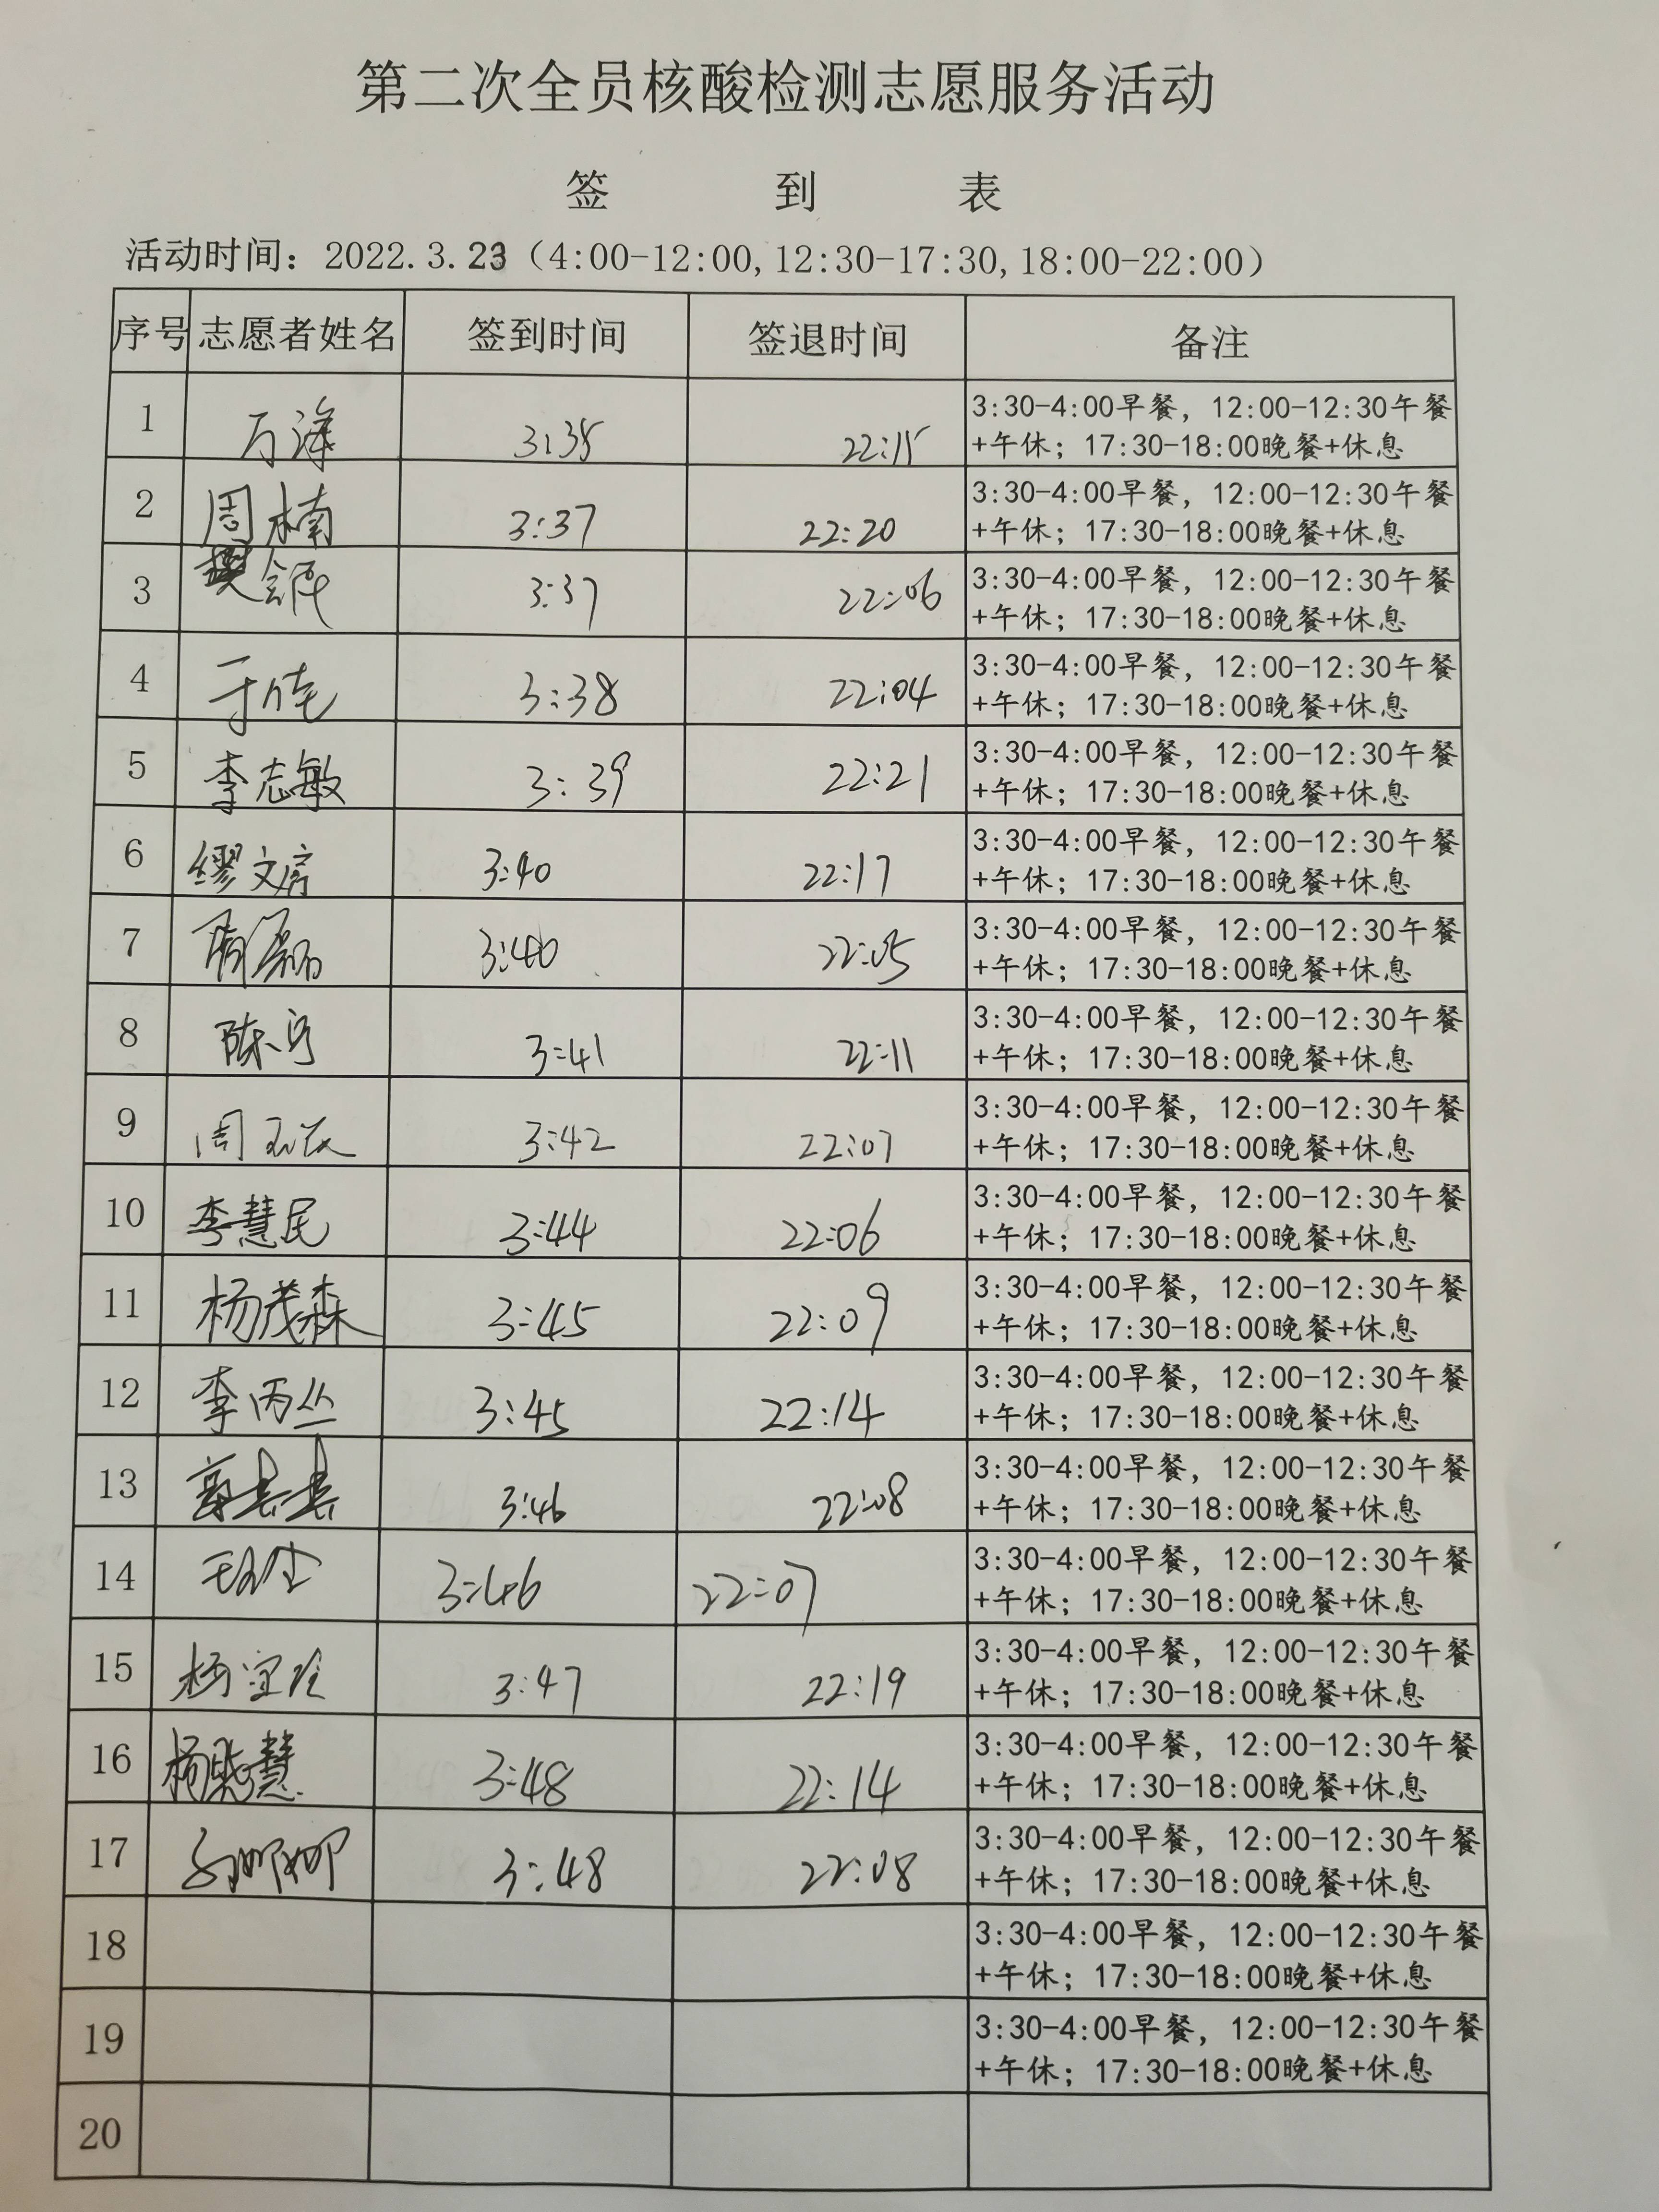 第二次全员核酸检测志愿服务活动
签 到 表
活动时间：2022.3.23（4:00-12:00,12:30-17:30,18:00-22:00）
序号 志愿者姓名 签到时间 签退时间 备注
1 万海 3:35 22:15 3:30-4:00早餐，12:00-12:30午餐
+午休；17:30-18:00晚餐+休息
2 周楠 3:37 22:20 3:30-4:00早餐，12:00-12:30午餐
+午休；17:30-18:00晚餐+休息
3 3:37 22:06 3:30-4:00早餐，12:00-12:30午餐
+午休；17:30-18:00晚餐+休息
4 3:38 22:04 3:30-4:00早餐，12:00-12:30午餐
+午休；17:30-18:00晚餐+休息
5 李志敏 3:39 22:21 3:30-4:00早餐，12:00-12:30午餐
+午休；17:30-18:00晚餐+休息
6 3:40 22:17 3:30-4:00早餐，12:00-12:30午餐
+午休；17:30-18:00晚餐+休息
7 周磊 3:40 22:05 3:30-4:00早餐，12:00-12:30午餐
+午休；17:30-18:00晚餐+休息
8 3:41 22:11 3:30-4:00早餐，12:00-12:30午餐
+午休；17:30-18:00晚餐+休息
9 3:42 22:07 3:30-4:00早餐，12:00-12:30午餐
+午休；17:30-18:00晚餐+休息
10 李慧民 3:44 22:06 3:30-4:00早餐，12:00-12:30午餐
+午休；17:30-18:00晚餐+休息
11 杨茂森 3:45 22:09 3:30-4:00早餐，12:00-12:30午餐
+午休；17:30-18:00晚餐+休息
12 李丙丛 3:45 22:14 3:30-4:00早餐，12:00-12:30午餐
+午休；17:30-18:00晚餐+休息
13 3:46 22:08 3:30-4:00早餐，12:00-12:30午餐
+午休；17:30-18:00晚餐+休息
14 3:46 22:07 3:30-4:00早餐，12:00-12:30午餐
+午休；17:30-18:00晚餐+休息
15 3:47 22:19 3:30-4:00早餐，12:00-12:30午餐
+午休；17:30-18:00晚餐+休息
16 3:48 22:14 3:30-4:00早餐，12:00-12:30午餐
+午休；17:30-18:00晚餐+休息
17 3:48 22:08 3:30-4:00早餐，12:00-12:30午餐
+午休；17:30-18:00晚餐+休息
18 3:30-4:00早餐，12:00-12:30午餐
+午休；17:30-18:00晚餐+休息
19 3:30-4:00早餐，12:00-12:30午餐
+午休；17:30-18:00晚餐+休息
20